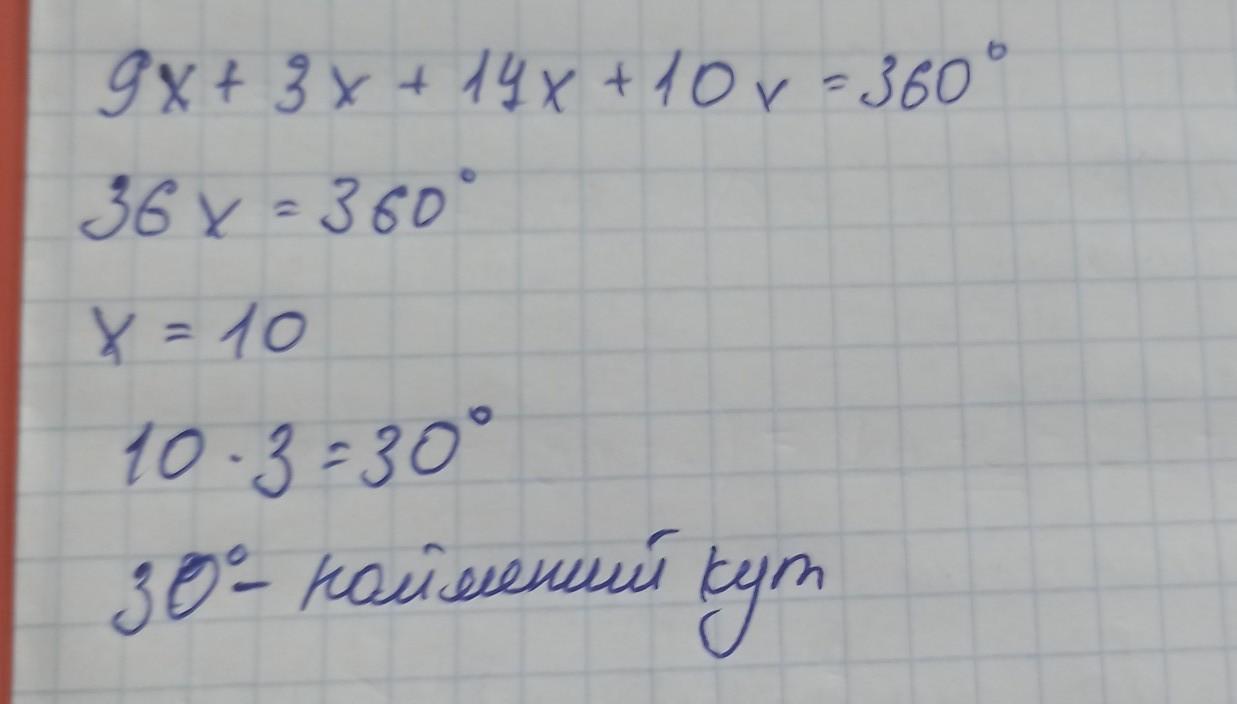 9x + 3x + 14x + 10x = 360°
36x = 360°
x = 10
10 · 3 = 30°
30° – найменший кут